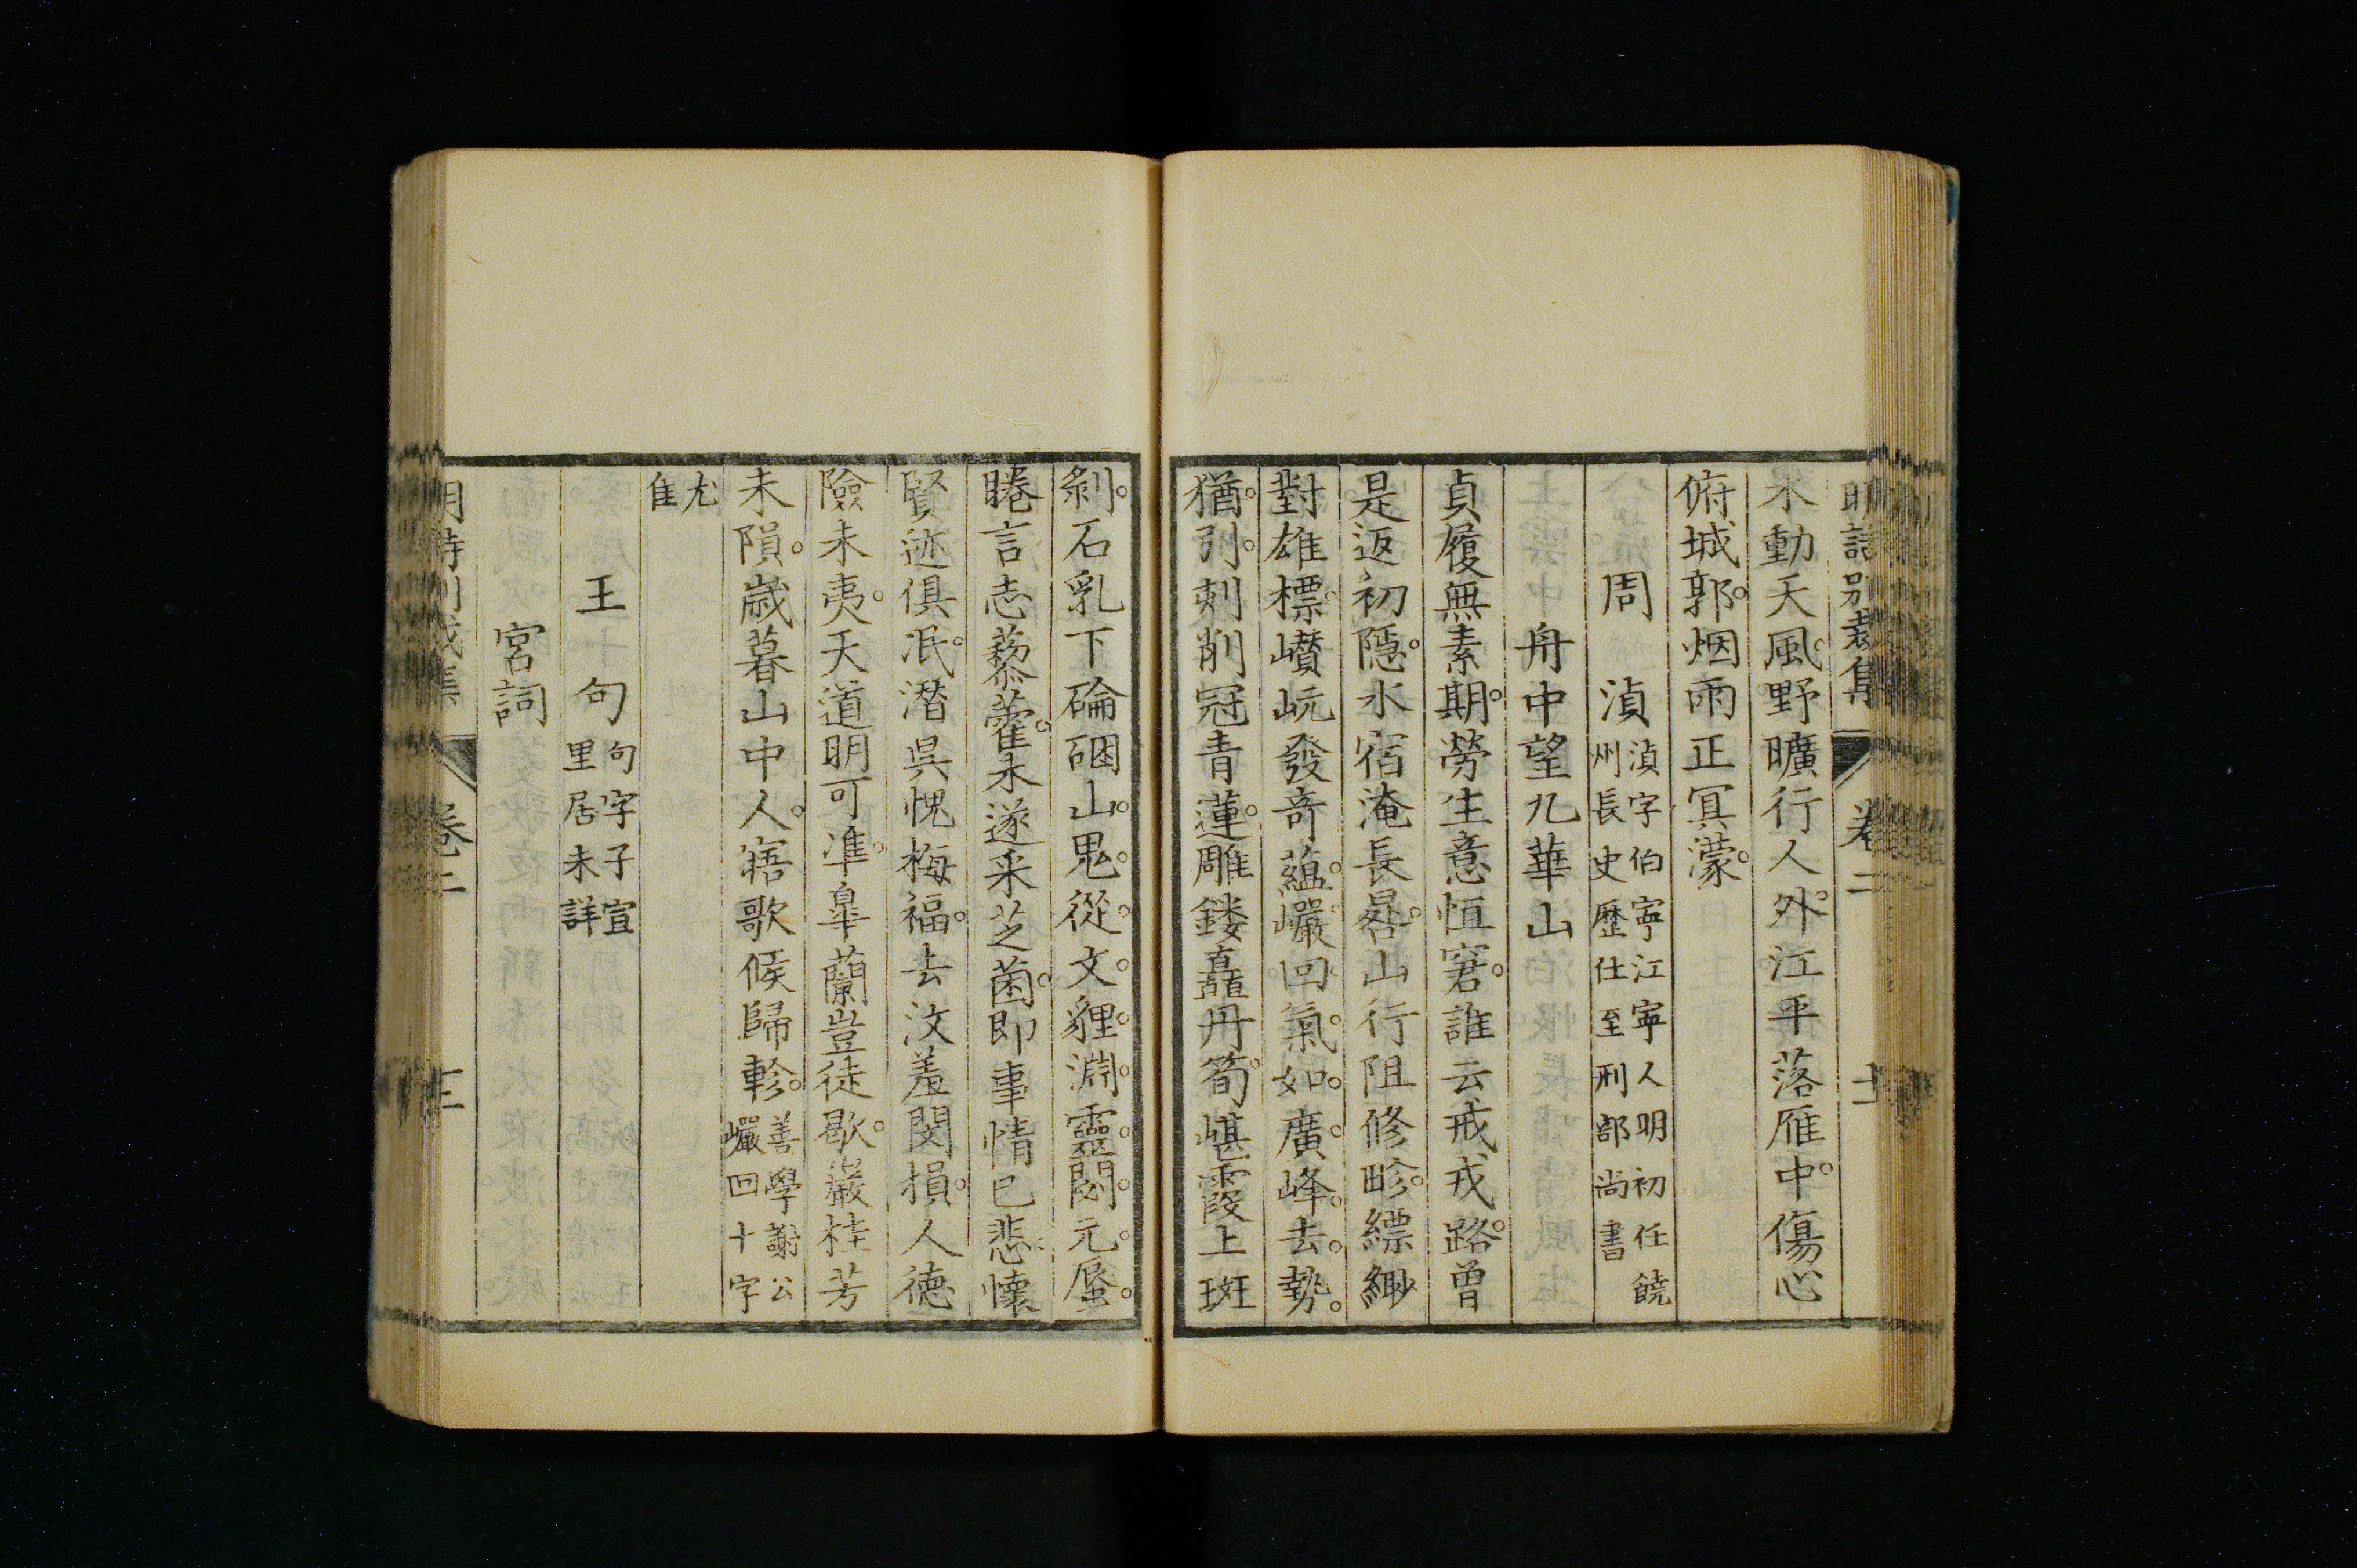 明詩別裁集 卷二 十二
永動天風野曠行人外江平落雁中傷心
俯城郭烟雨正冥濛
周 湞 湞字伯寧江寧人明初任饒州長史歷仕至刑部尚書
舟中望九華山
貞履無素期勞生意恒窘誰云戒戎路曾
是返初隱水宿淹長晷山行阻修畛縹緲
對雄標巑岏發奇蘊巘回氣如廣峰去勢
猶引刻削冠青蓮雕鏤矗丹筍嵁霞上斑
剝石乳下碖硱山鬼從文貍淵靈閟元蜃
睠言志藜藿未遂采芝菌即事情已悲懷
賢迹俱泯潛吳愧梅福去汶羞閔損人德
險未夷天道明可準皐蘭豈徒歇巖桂芳
未隕歲暮山中人寤歌候歸軫 善學謝公巘回十字
尤隹
王 句 句字子宣里居未詳
宮詞
明詩別裁集 卷二